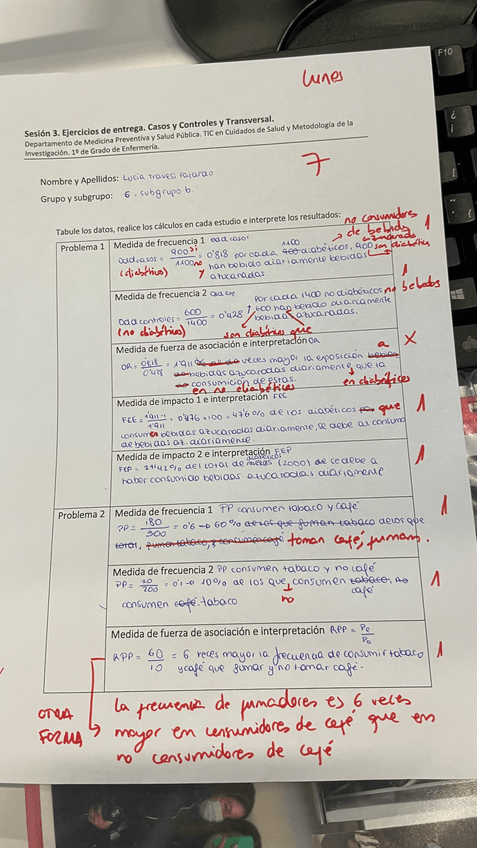 F10
lunes
Sesión 3. Ejercicios de entrega. Casos y Controles y Transversal.
Departamento de Medicina Preventiva y Salud Pública. TIC en Cuidados de Salud y Metodología de la
Investigación. 1º de Grado de Enfermería.
7
Nombre y Apellidos: Lucía Travesí
Grupo y subgrupo: 6, subgrupo b.
Tabule los datos, realice los cálculos en cada estudio e interprete los resultados:
no consumidores
de bebida
azucarada
1
Problema 1
Medida de frecuencia 1 Odd casos
Odd casos = 900 sí / 1100 no = 0'818 por cada 1100 diabéticos, 900 son diabétic
(diabéticos) y han bebido diariamente bebidas
azucaradas.
1
Medida de frecuencia 2
Por cada 1400 no diabéticos no bebedos
Odd controles = 600 / 1400 = 0'428 600 han bebido diariamente
bebidas azucaradas.
(no diabéticos) son diabétic que
Medida de fuerza de asociación e interpretación OR
a X
OR = 0'818 / 0'428 = 1'911 veces mayor la exposición
bebidas azucaradas diariamente que la
no consumición de estas. en diabéticos
en no diabéticos
Medida de impacto 1 e interpretación FEE
FEE = 1'911-1 / 1'911 = 0'476 × 100 = 47'6% de los diabéticos que 1
consumen bebidas azucaradas diariamente, se debe al consumo
de bebidas az. diariamente.
Medida de impacto 2 e interpretación FEP
diabéticos
FEP = 21'42% del total de (2000) se debe a 1
haber consumido bebidas azucaradas diariamente
Problema 2
Medida de frecuencia 1 PP consumen tabaco y café 1
PP = 180 / 300 = 0'6 → 60% de los que fuman tabaco de los que
total, fuman tabaco, y consumen café toman café, fuman.
Medida de frecuencia 2 PP consumen tabaco y no café
PP = 20 / 200 = 0'1 → 10% de los que consumen tabaco, no 1
no café
consumen café tabaco
Medida de fuerza de asociación e interpretación RPP = Pe / Po
RPP = 60 / 10 = 6 veces mayor la frecuencia de consumir tabaco 1
y café que fumar y no tomar café.
OTRA
FORMA
La frecuencia de fumadores es 6 veces
mayor en consumidores de café que en
no consumidores de café